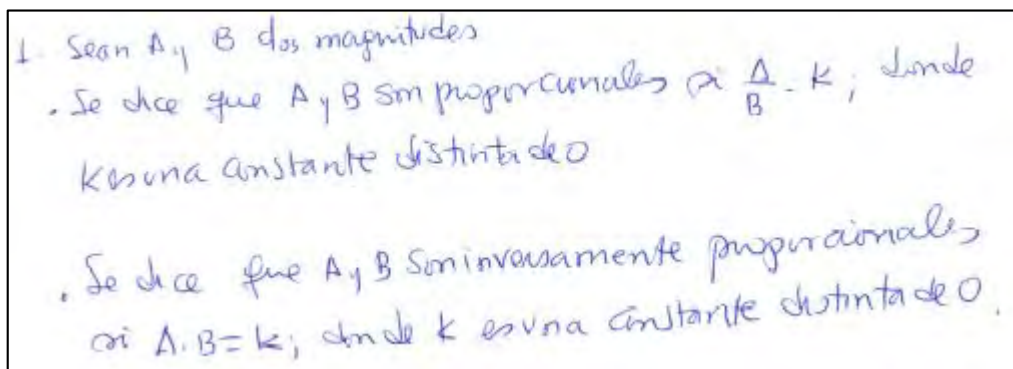 1. Sean A y B dos magnitudes
. Se dice que A y B son proporcionales si A/B = K, donde
K es una constante distinta de 0
. Se dice que A y B son inversamente proporcionales
si A.B = k; donde k es una constante distinta de 0.